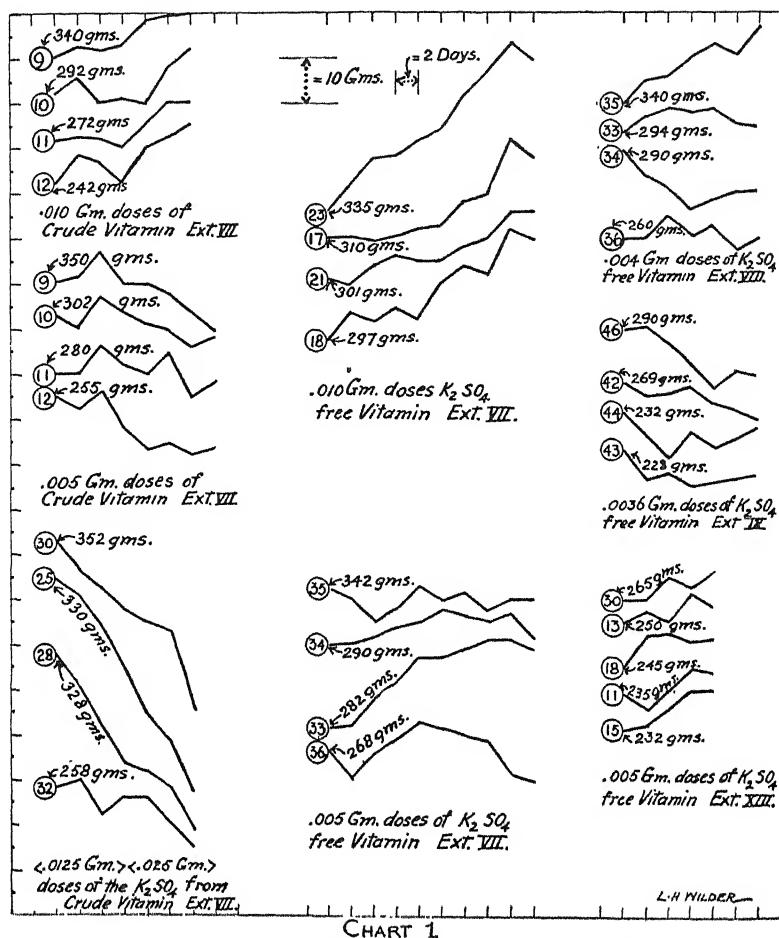 9 340 gms.
10 292 gms.
11 272 gms
12 242 gms
.010 Gm. doses of
Crude Vitamin Ext. VII
9 350 gms.
10 302 gms.
11 280 gms.
12 255 gms.
.005 Gm. doses of
Crude Vitamin Ext. VII.
30 352 gms.
25 330 gms.
28 328 gms.
32 258 gms.
<.0125 Gm.> <.025 Gm.>
doses of the K2SO4 from
Crude Vitamin Ext. VII.
= 10 Gms.
= 2 Days.
23 335 gms.
17 310 gms.
21 301 gms
18 297 gms.
.010 Gm. doses K2SO4
free Vitamin Ext. VII.
35 342 gms.
34 290 gms.
33 282 gms
36 268 gms.
.005 Gm. doses of K2SO4
free Vitamin Ext. VII.
35 340 gms.
33 294 gms
34 290 gms.
36 260 gms.
.004 Gm doses of K2SO4
free Vitamin Ext. VIII.
46 290 gms.
42 269 gms.
44 232 gms.
43 228 gms.
.0036 Gm. doses of K2SO4
free Vitamin Ext IX
30 265 gms.
13 250 gms.
18 245 gms.
11 235 gms.
15 232 gms.
.005 Gm. doses of K2SO4
free Vitamin Ext. XIII.
L. H WILDER
CHART 1